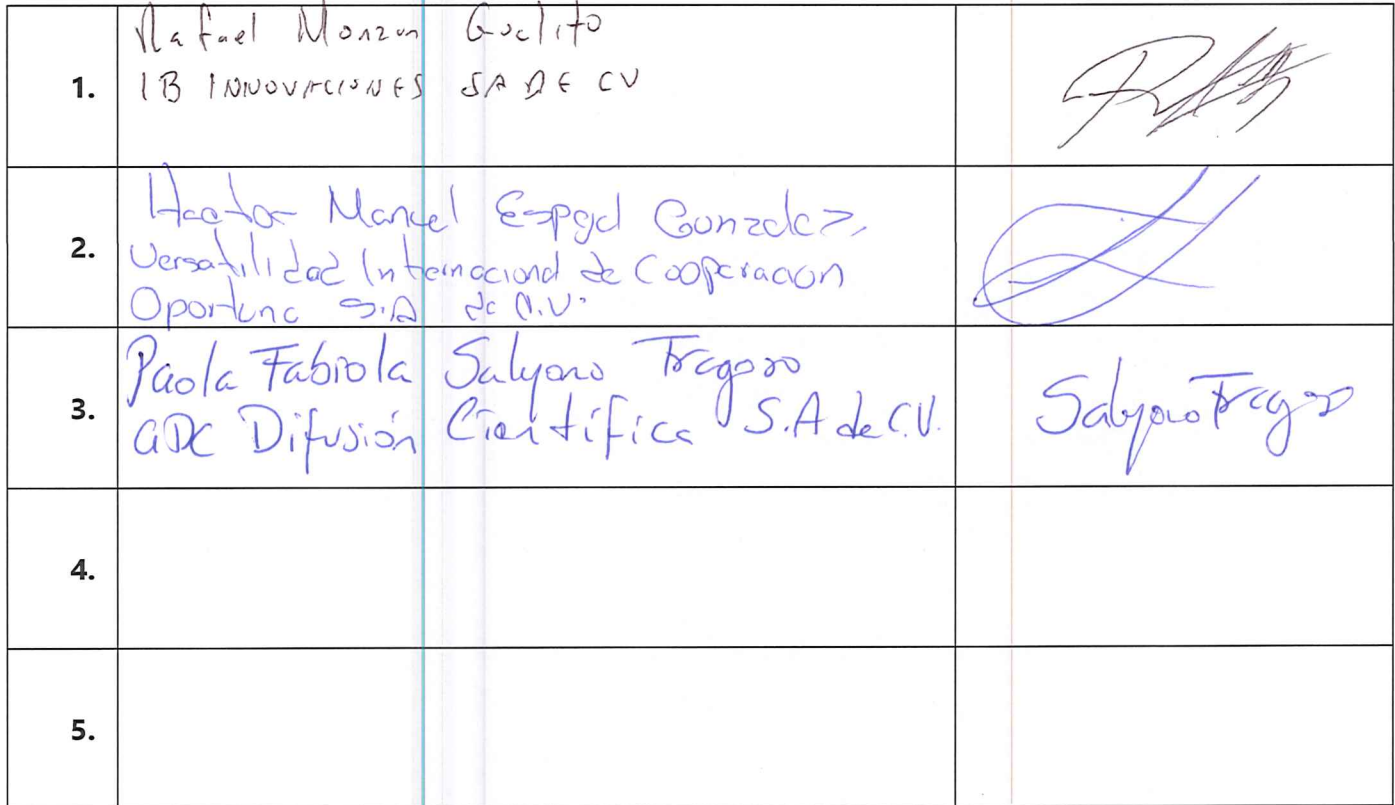 1.
Rafael Monzon
IB INNOVACIONES SA DE CV
2.
Hector Manuel Espejel Gonzalez,
Versatilidad Internacional de Cooperacion
Oportuna S.A de C.V.
3.
Paola Fabiola Salyano Fragoso
GDC Difusión Científica S.A de C.V.
Salyano Fragoso
4.
5.